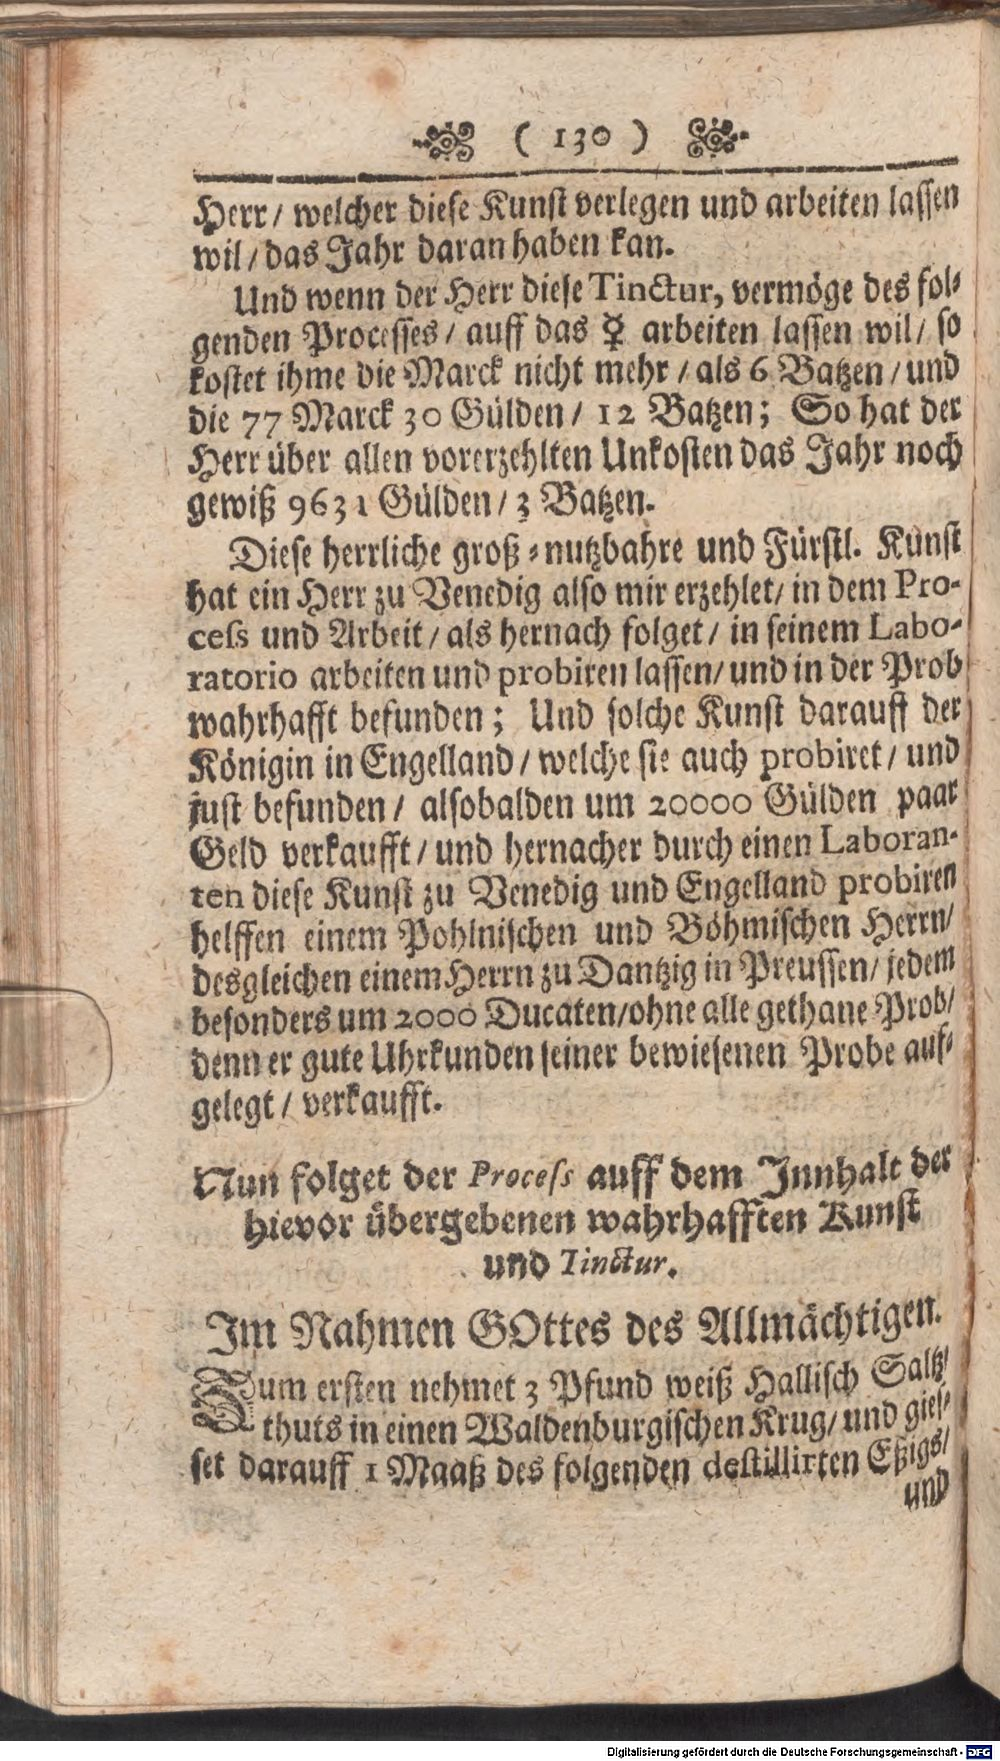 ( 130 )
Herr/ welcher diese Kunst verlegen und arbeiten lassen
wil/ das Jahr daran haben kan.
Und wenn der Herr diese Tinctur, vermöge des fol⸗
genden Processes/ auff das ☿ arbeiten lassen wil/ so
kostet ihme die Marck nicht mehr/ als 6 Batzen/ und
die 77 Marck 30 Gülden/ 12 Batzen; So hat der
Herr über allen vorerzehlten Unkosten das Jahr noch
gewiß 9631 Gülden/ 3 Batzen.
Diese herrliche groß⸗nutzbahre und Fürstl. Kunst
hat ein Herr zu Venedig also mir erzehlet/ in dem Pro-
cess und Arbeit/ als hernach folget/ in seinem Labo-
ratorio arbeiten und probiren lassen/ und in der Prob
wahrhafft befunden; Und solche Kunst darauff der
Königin in Engelland/ welche sie auch probiret/ und
just befunden/ alsobalden um 20000 Gülden paar
Geld verkaufft/ und hernacher durch einen Laboran-
ten diese Kunst zu Venedig und Engelland probiren
helffen einem Pohlnischen und Böhmischen Herrn/
desgleichen einem Herrn zu Dantzig in Preussen/ jedem
besonders um 2000 Ducaten/ohne alle gethane Prob/
denn er gute Uhrkunden seiner bewiesenen Probe auf⸗
gelegt/ verkaufft.
Nun folget der Process auff dem Innhalt der
hievor übergebenen wahrhafften Kunst
und Tinctur.
Im Nahmen GOttes des Allmächtigen.
Zum ersten nehmet 3 Pfund weiß Hallisch Saltz/
thuts in einen Waldenburgischen Krug/ und gies⸗
set darauff 1 Maaß des folgenden destillirten Eßigs/
und
Digitalisierung gefördert durch die Deutsche Forschungsgemeinschaft - DFG